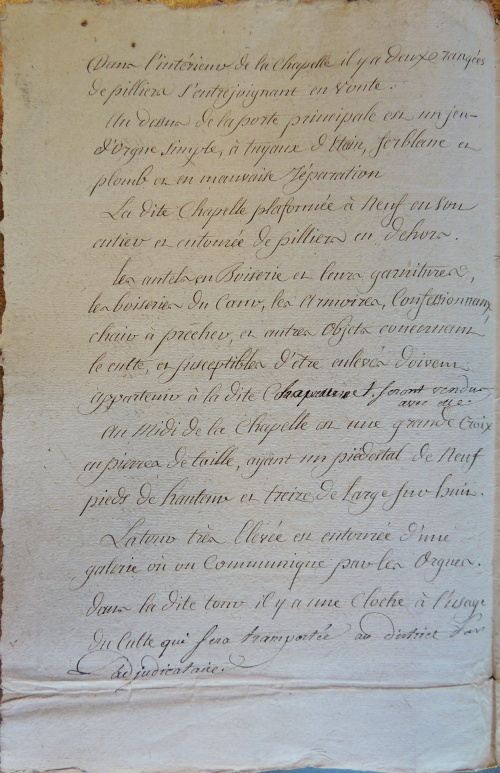 Dans l'intérieur de la Chapelle il y a deux rangées
de pilliers s'entrejoignant en Voute.
Au dessus de la porte principale est un jeu
d'Orgue Simple, à tuyaux d'Etain, ferblanc et
plomb et en mauvaise Réparation
La dite Chapelle plafonnée à Neuf en son
entier et entourée de pilliers en dehors.
Les autels en Boiserie et leurs garnitures,
les boiseries du Cœur, les Armoires, Confessionnaux
chair à prêcher, et autres Objets concernant
le culte, et susceptibles d'être enlevés doivent
appartenir à la dite Chapelle et seront vendus
avec elle.
Au Midi de la Chapelle est une grande Croix
en pierres de taille, ayant un piédestal de Neuf
pieds de hauteur et treize de large sur huit.
La tour très Elevée est entourée d'une
galerie où on Communique par les Orgues.
Dans la dite tour il y a une Cloche à l'usage
du Culte qui sera transportée au district par
l'adjudicataire.